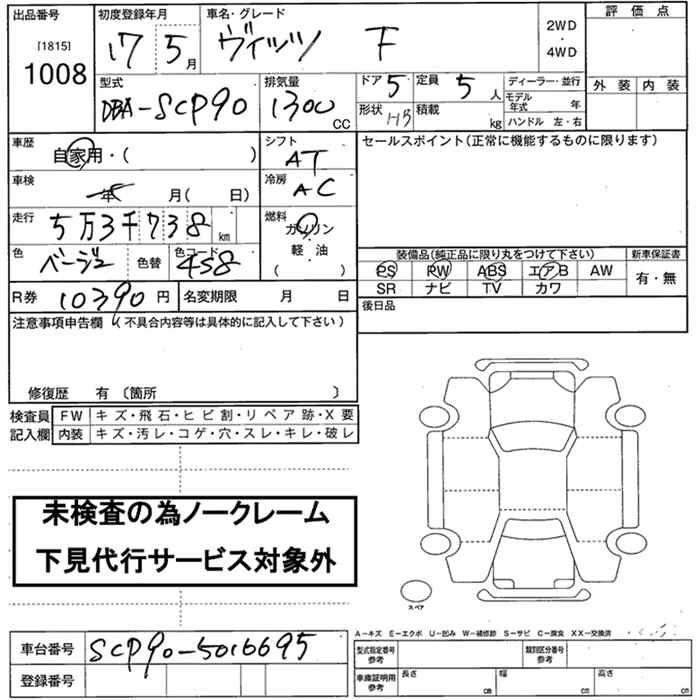 出品番号 初度登録年月 車名・グレード 評価点
[1815] 17 5月 ヴィッツ F 2WD・4WD
1008 外装 内装
型式 排気量 ドア 5 定員 5人 ディーラー・並行
DBA-SCP90 1300cc 形状 HB 積載 kg モデル年式 年
ハンドル 左・右
車歴 自家用・( ) シフト AT セールスポイント(正常に機能するものに限ります)
車検 年 月( 日) 冷房 AC
走行 5万3千738km 燃料 ガソリン
軽・油
( )
色 ベージュ 色替 色コード 4S8 装備品(純正品に限り丸をつけて下さい) 新車保証書
PS PW ABS エアB AW 有・無
SR ナビ TV カワ
R券 10390円 名変期限 月 日 後日品
注意事項申告欄(不具合内容等は具体的に記入して下さい)
修復歴 有〔箇所 〕
検査員記入欄 FW キズ・飛石・ヒビ割・リペア跡・X要
内装 キズ・汚レ・コゲ・穴・スレ・キレ・破レ
未検査の為ノークレーム
下見代行サービス対象外
スペア
A-キズ E-エクボ U-凹み W-補修跡 S-サビ C-腐食 XX-交換済
車台番号 SCP90-5016695 型式指定番号 参考 類別区分番号 参考
登録番号 車庫証明用 参考 長さ cm 幅 cm 高さ cm